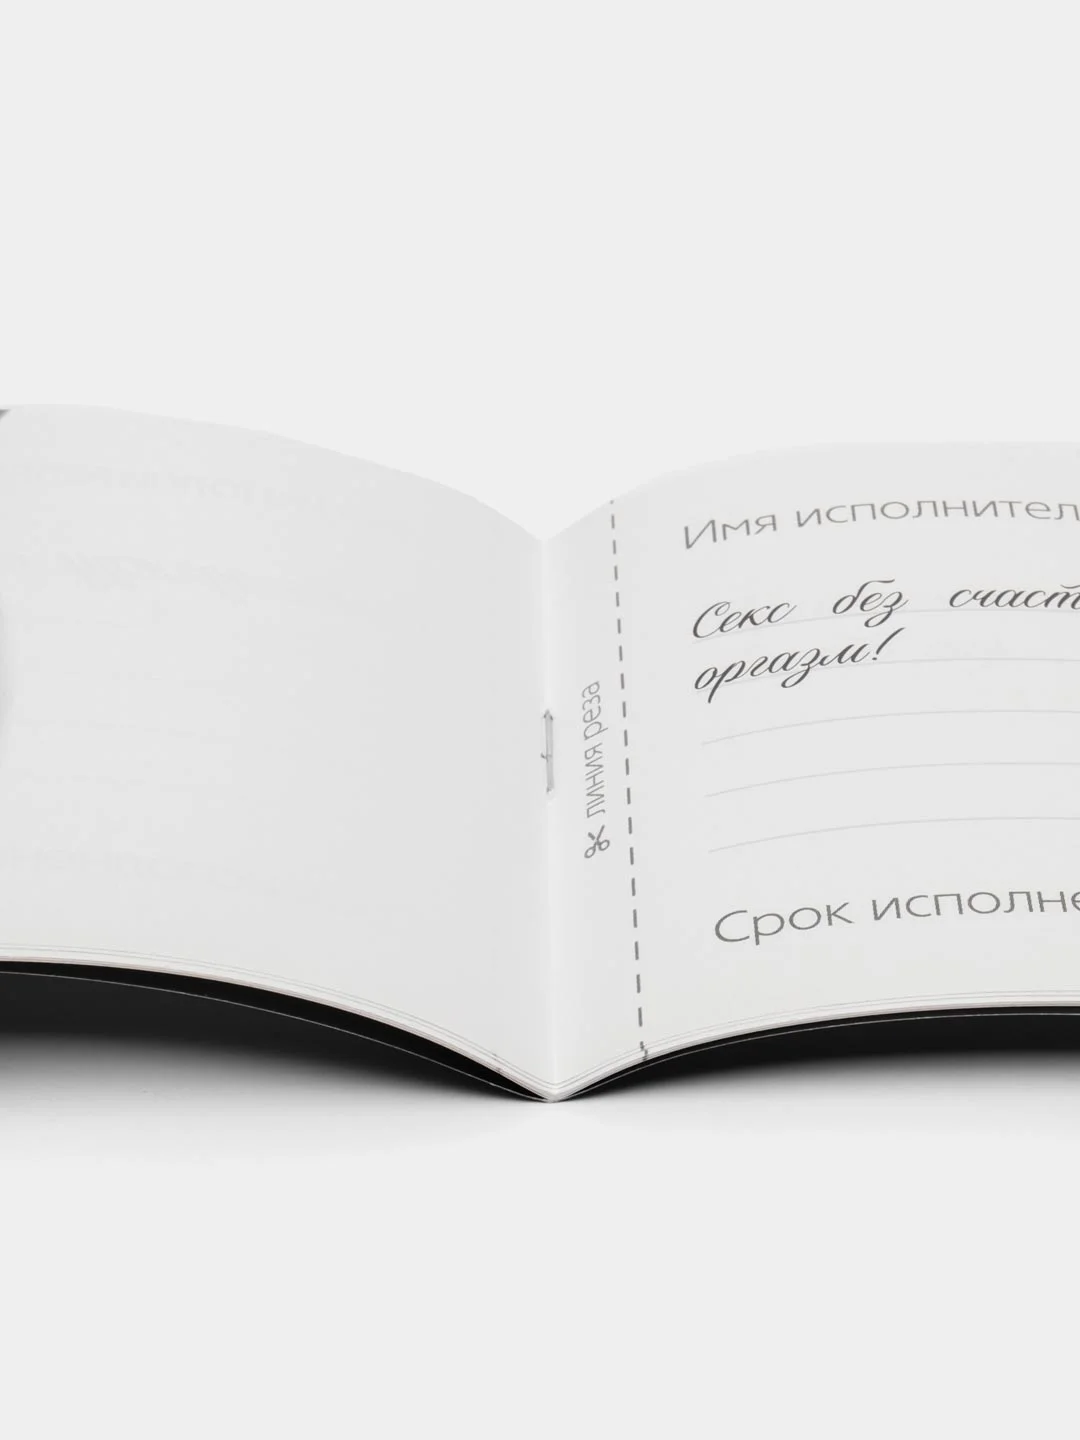 линия реза
Имя исполнител
Секс без счаст
оргазм!
Срок исполне